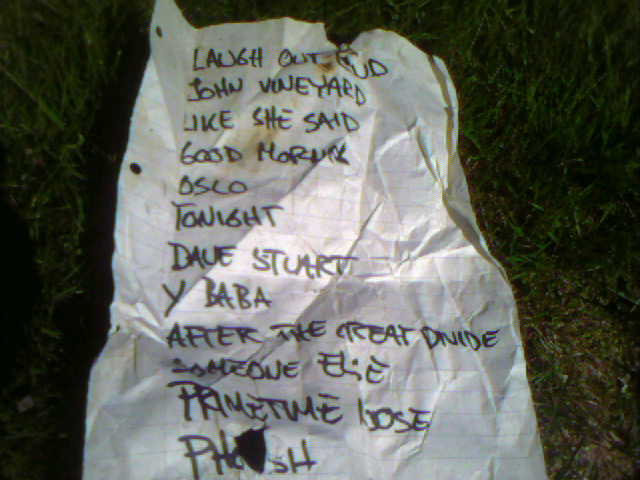 LAUGH OUT LOUD
JOHN VINEYARD
LIKE SHE SAID
GOOD MORNING
OSLO
TONIGHT
DAVE STUART
Y BABA
AFTER THE GREAT DIVIDE
SOMEONE ELSE
PRIMETIME